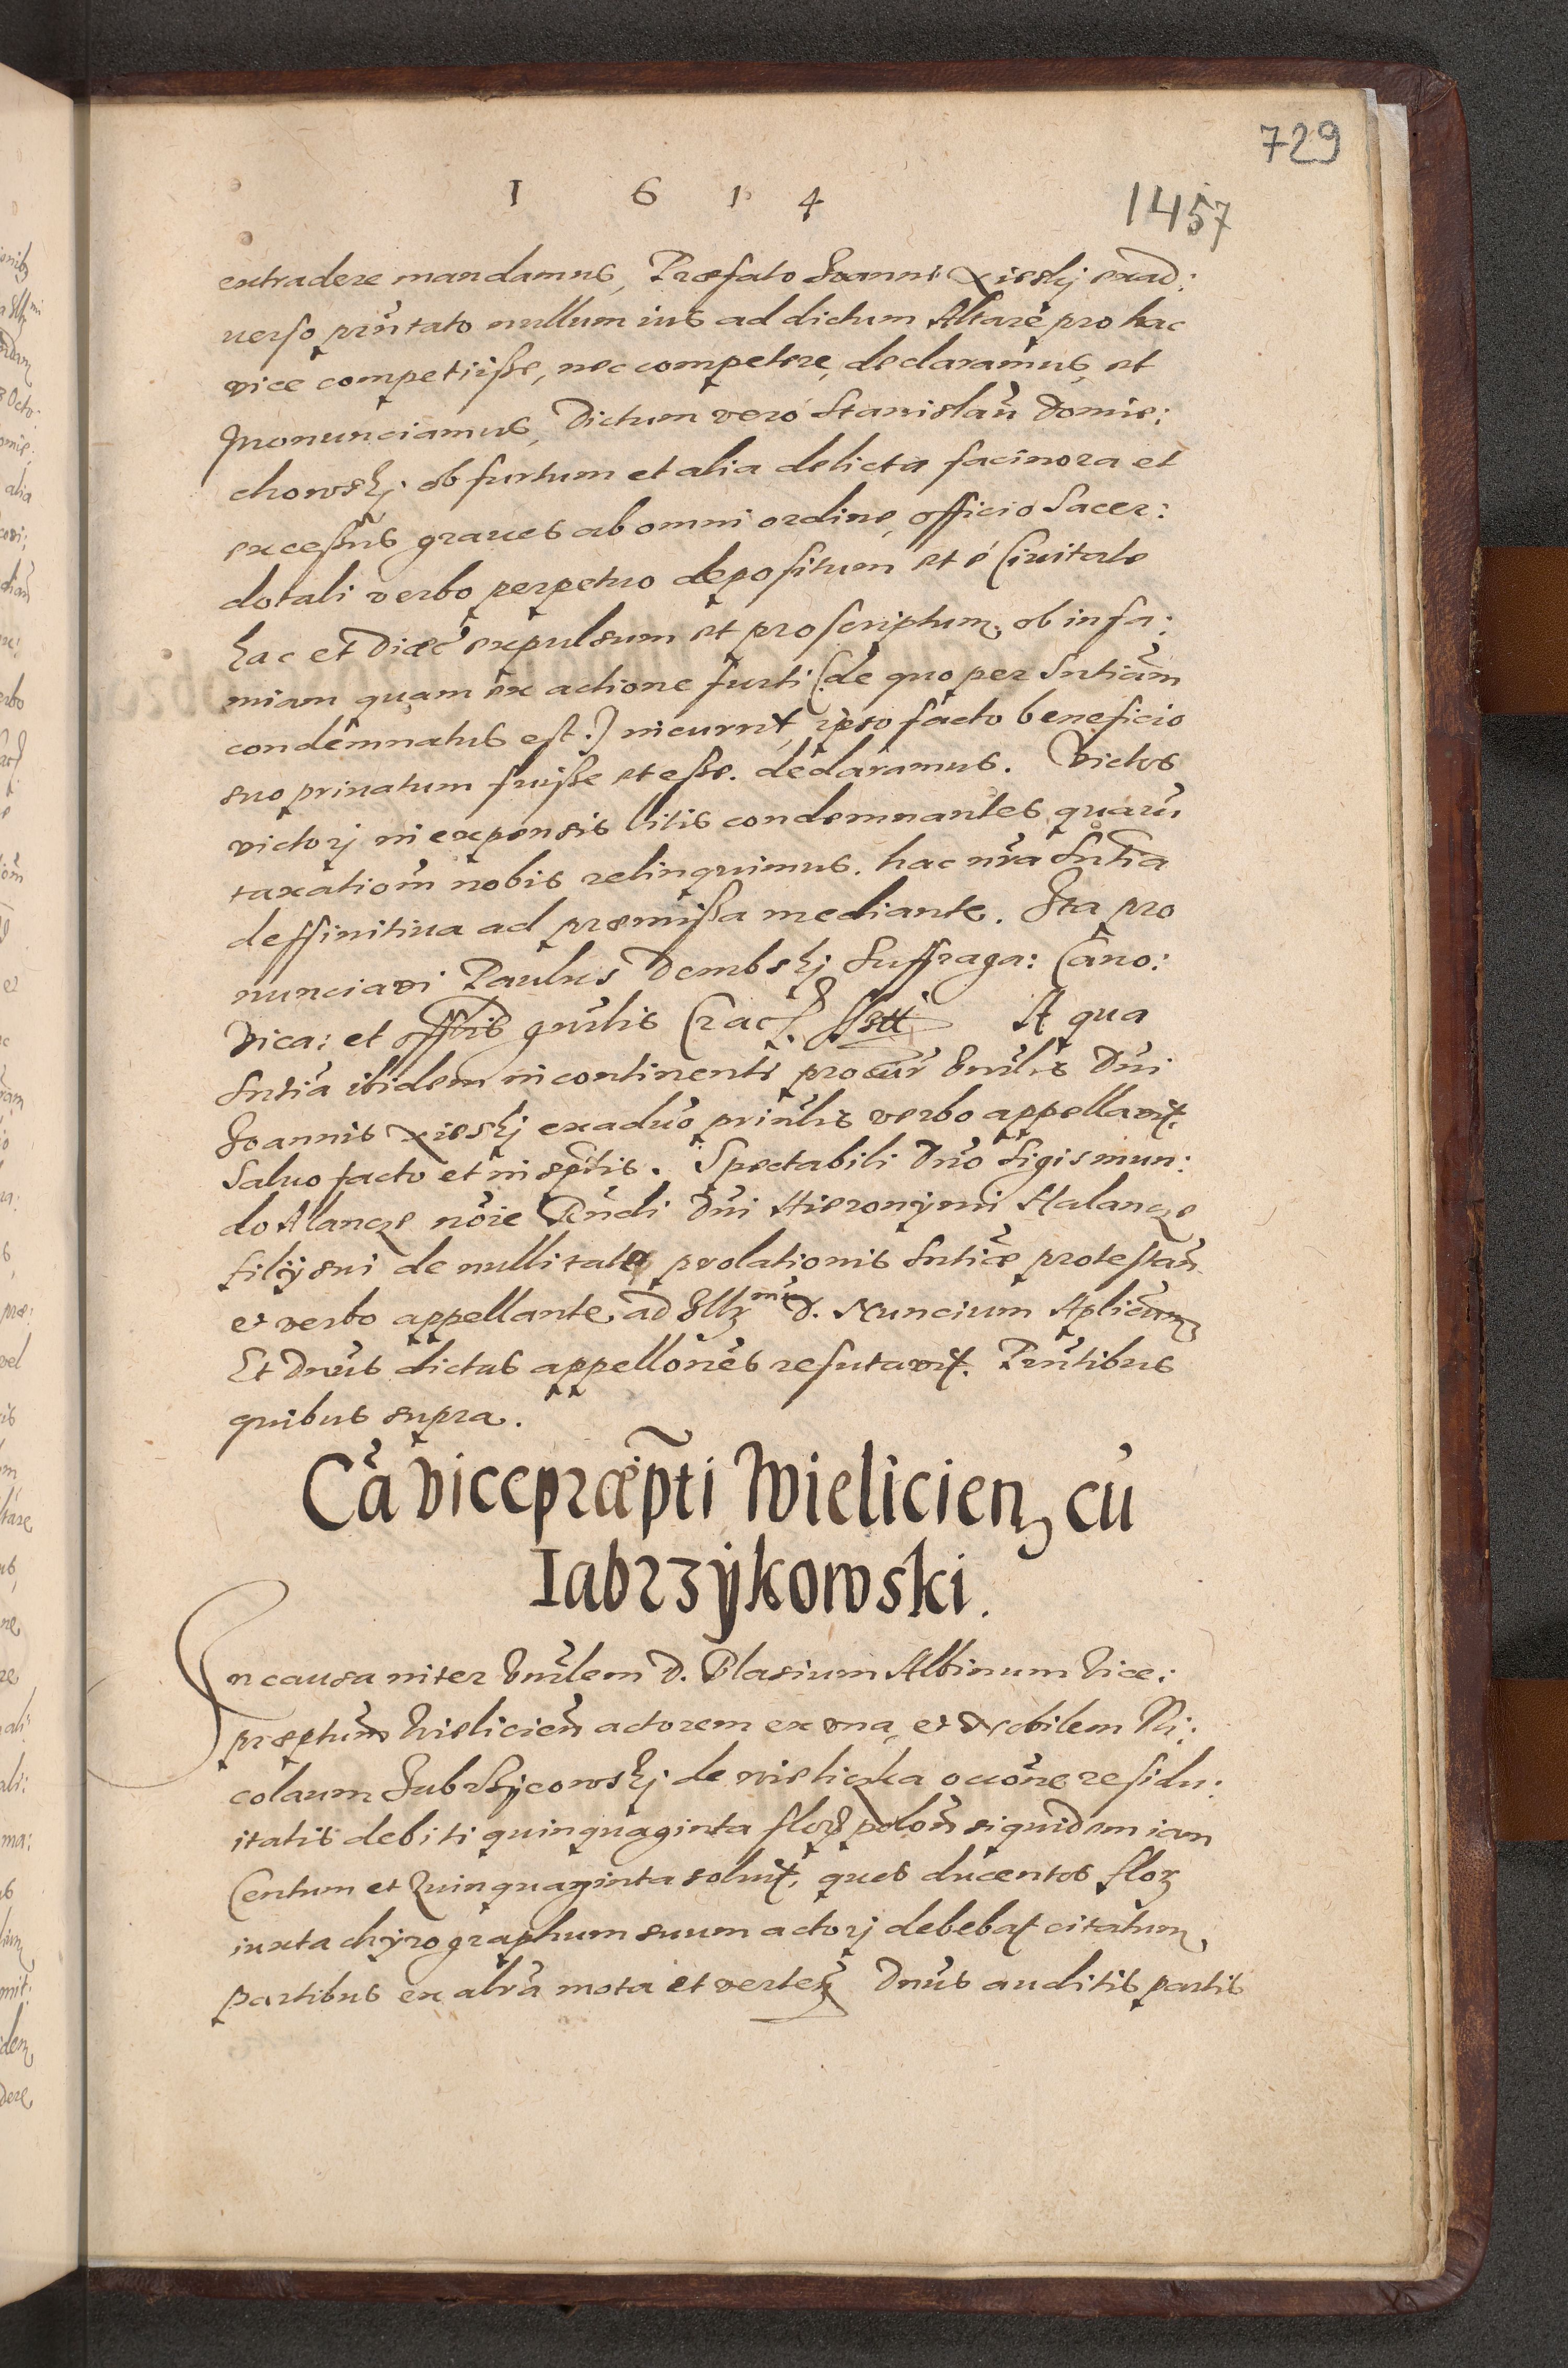 729
1 6 1 4
1457
extradere mandamus, Præfato Joanni Xieskj exad:
uerso prñtato nullum ius ad dictum Altare pro hac
vice competiisse, nec competere, declaramus, et
pronunciamus, Dictum verò Stanislaũ Domie:
chowskj ob furtum et alia delicta facinora et
excessus graues ab omni ordine, officio Sacer:
dotali verbo perpetuo depositum et è Ciuitate
hac et Diæc expulsum et proscriptum, ob infa:
miam quam ex actione furti (:de quo per Sntiam
condemnatus est:) incurrit, ipso facto beneficio
suo priuatum fuisse et esse declaramus. Victos
victorj in expensis litis condemnantes, quarũ
taxatiom nobis relinquimus. hac nrã Sntia
deffinitiua ad præmissa mediante. Ita pro
nunciaui Paulus Dembskj Suffraga: Cano:
Vica: et offtis gñlis Crac. A qua
Sntia ibidem incontinenti procur Vnrlis Dni
Joannis Xieskj exaduo priñlis verbo appellauit.
Saluo facto et in sptis. Spectabili Dno Sigismun:
do Alantze noie Rndi Dni Hieronymi Halantze
filij sui de nullitate prolationis Sntiæ protestañ
et verbo appellante, ad Illmũ D. Nuncium Aplicum,
Et Dnus dictas appellones refutauit. Prñtibus
quibus supra.
Cã vicepræpti Wielicien, cũ
Iabrzÿkowski.
In causa inter Vnrlem D. Blasium Albinum Vice:
præptum Wielicieñ actorem ex vna, et Nobilem Ni:
colaum Jabrzycowskj de wieliczka occone residu:
itatis debiti quinquaginta flor poloñ siquidem iam
Centum et Quinquaginta soluit, quos ducentos flor
iuxta chyrographum suum actorj debebat citatum,
partibus ex altra mota et verteñ Dnus auditis partis